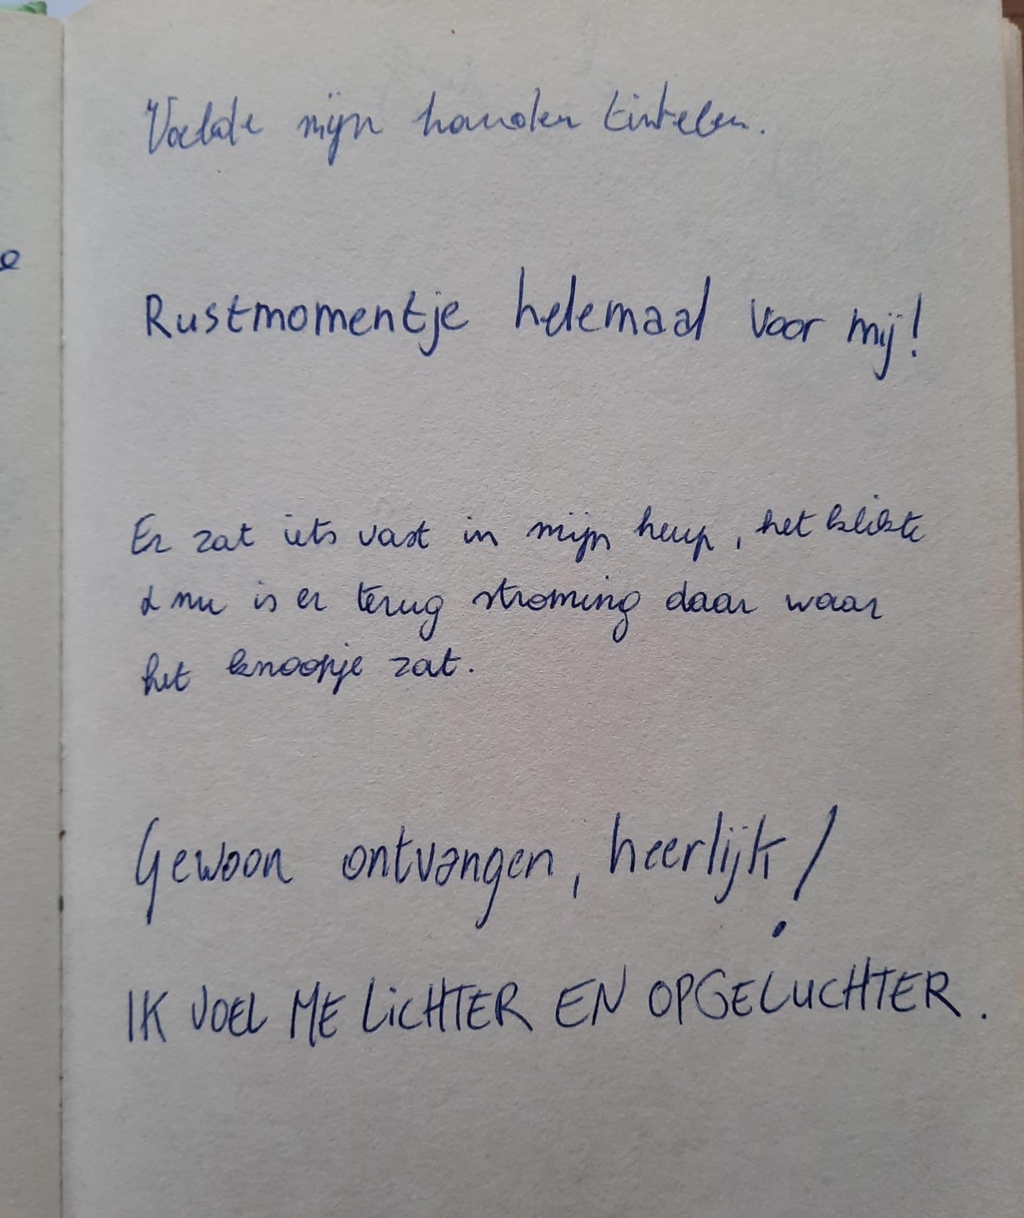 Voelde mijn handen tintelen.
Rustmomentje helemaal voor mij!
Er zat iets vast in mijn heup, het klikte
& nu is er terug stroming daar waar
het knoopje zat.
Gewoon ontvangen, heerlijk!
IK VOEL ME LiCHTER EN OPGELUCHTER.